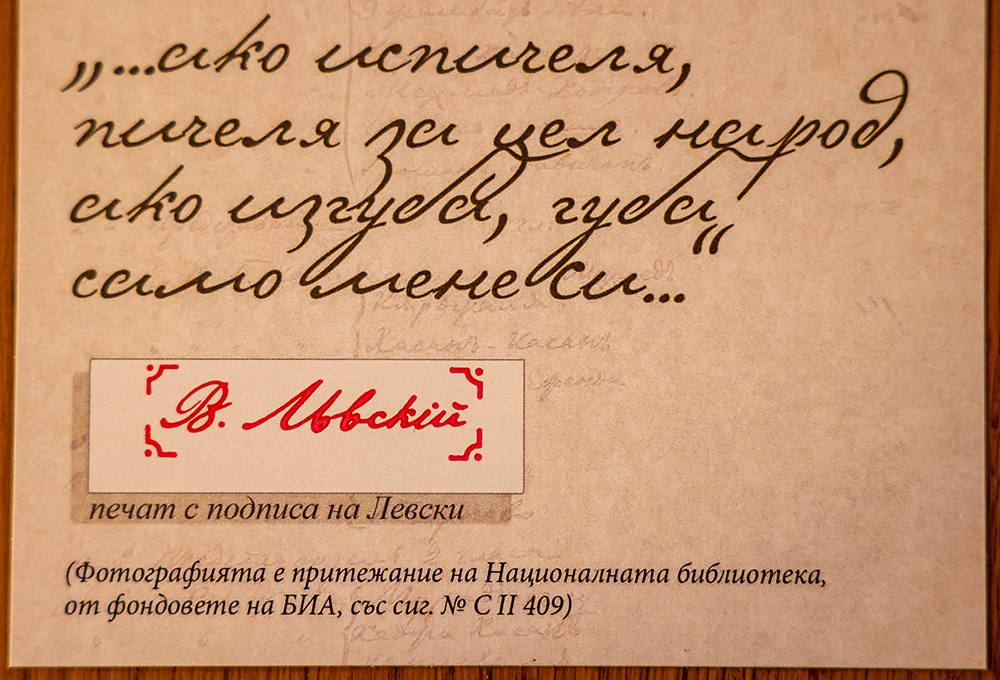 „...ако испичеля,
пичеля за цел народ,
ако изгубя, губя
само мене си...“
В. Львскій
печат с подписа на Левски
(Фотографията е притежание на Националната библиотека,
от фондовете на БИА, със сиг. № С II 409)